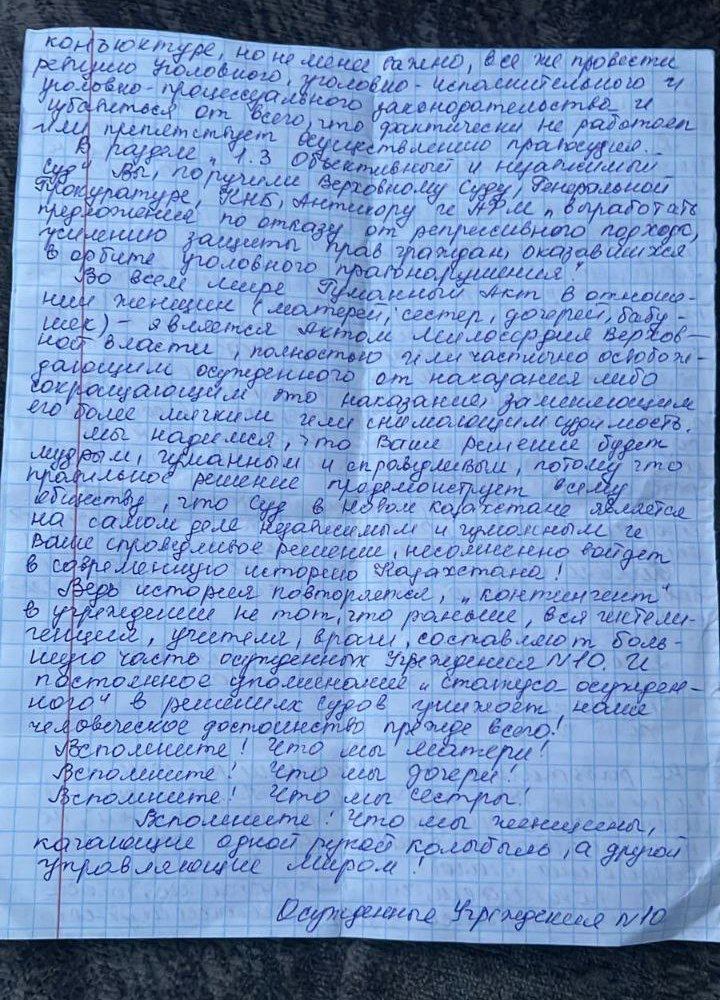 конъюктуре, но не менее важно, все же провести
ревизию уголовного, уголовно-исполнительного и
уголовно-процессуального законодательства и
избавиться от всего, что фактически не работает
или препятствует осуществлению правосудия.
В разделе "1.3 Объективный и независимый
суд" Вы, поручили Верховному Суду, Генеральной
Прокуратуре, КНБ, Антикору и АФМ "выработать
предложения по отказу от репрессивного подхода,
усилению защиты прав граждан, оказавшихся
в орбите уголовного правонарушения".
Во всем мире Гуманный Акт в отноше-
нии женщин (матерей, сестер, дочерей, бабу-
шек) - является Актом Милосердия Верхов-
ной власти, полностью или частично освобож-
дающим осужденного от наказания либо
сокращающим это наказание, заменяющим
его более мягким или снимающим судимость.
Мы надеемся, что Ваше решение будет
мудрым, гуманным и справедливым, потому что
правильное решение продемонстрирует всему
обществу, что Суд в новом Казахстане является
на самом деле независимым и гуманным и
Ваше справедливое решение, несомненно войдет
в современную историю Казахстана!
Ведь история повторяется, "контингент"
в учреждении не тот, что раньше, вся интели-
генция, учителя, врачи, составляют боль-
шую часть осужденных Учреждения N10. И
постоянное упоминание "статуса осужден-
ного" в решениях судов унижает наше
человеческое достоинство прежде всего!
Вспомните! Что мы матери!
Вспомните! Что мы дочери!
Вспомните! Что мы сестры!
Вспомните! Что мы женщины,
качающие одной рукой колыбель, а другой
управляющие миром!
Осужденные Учреждения N10